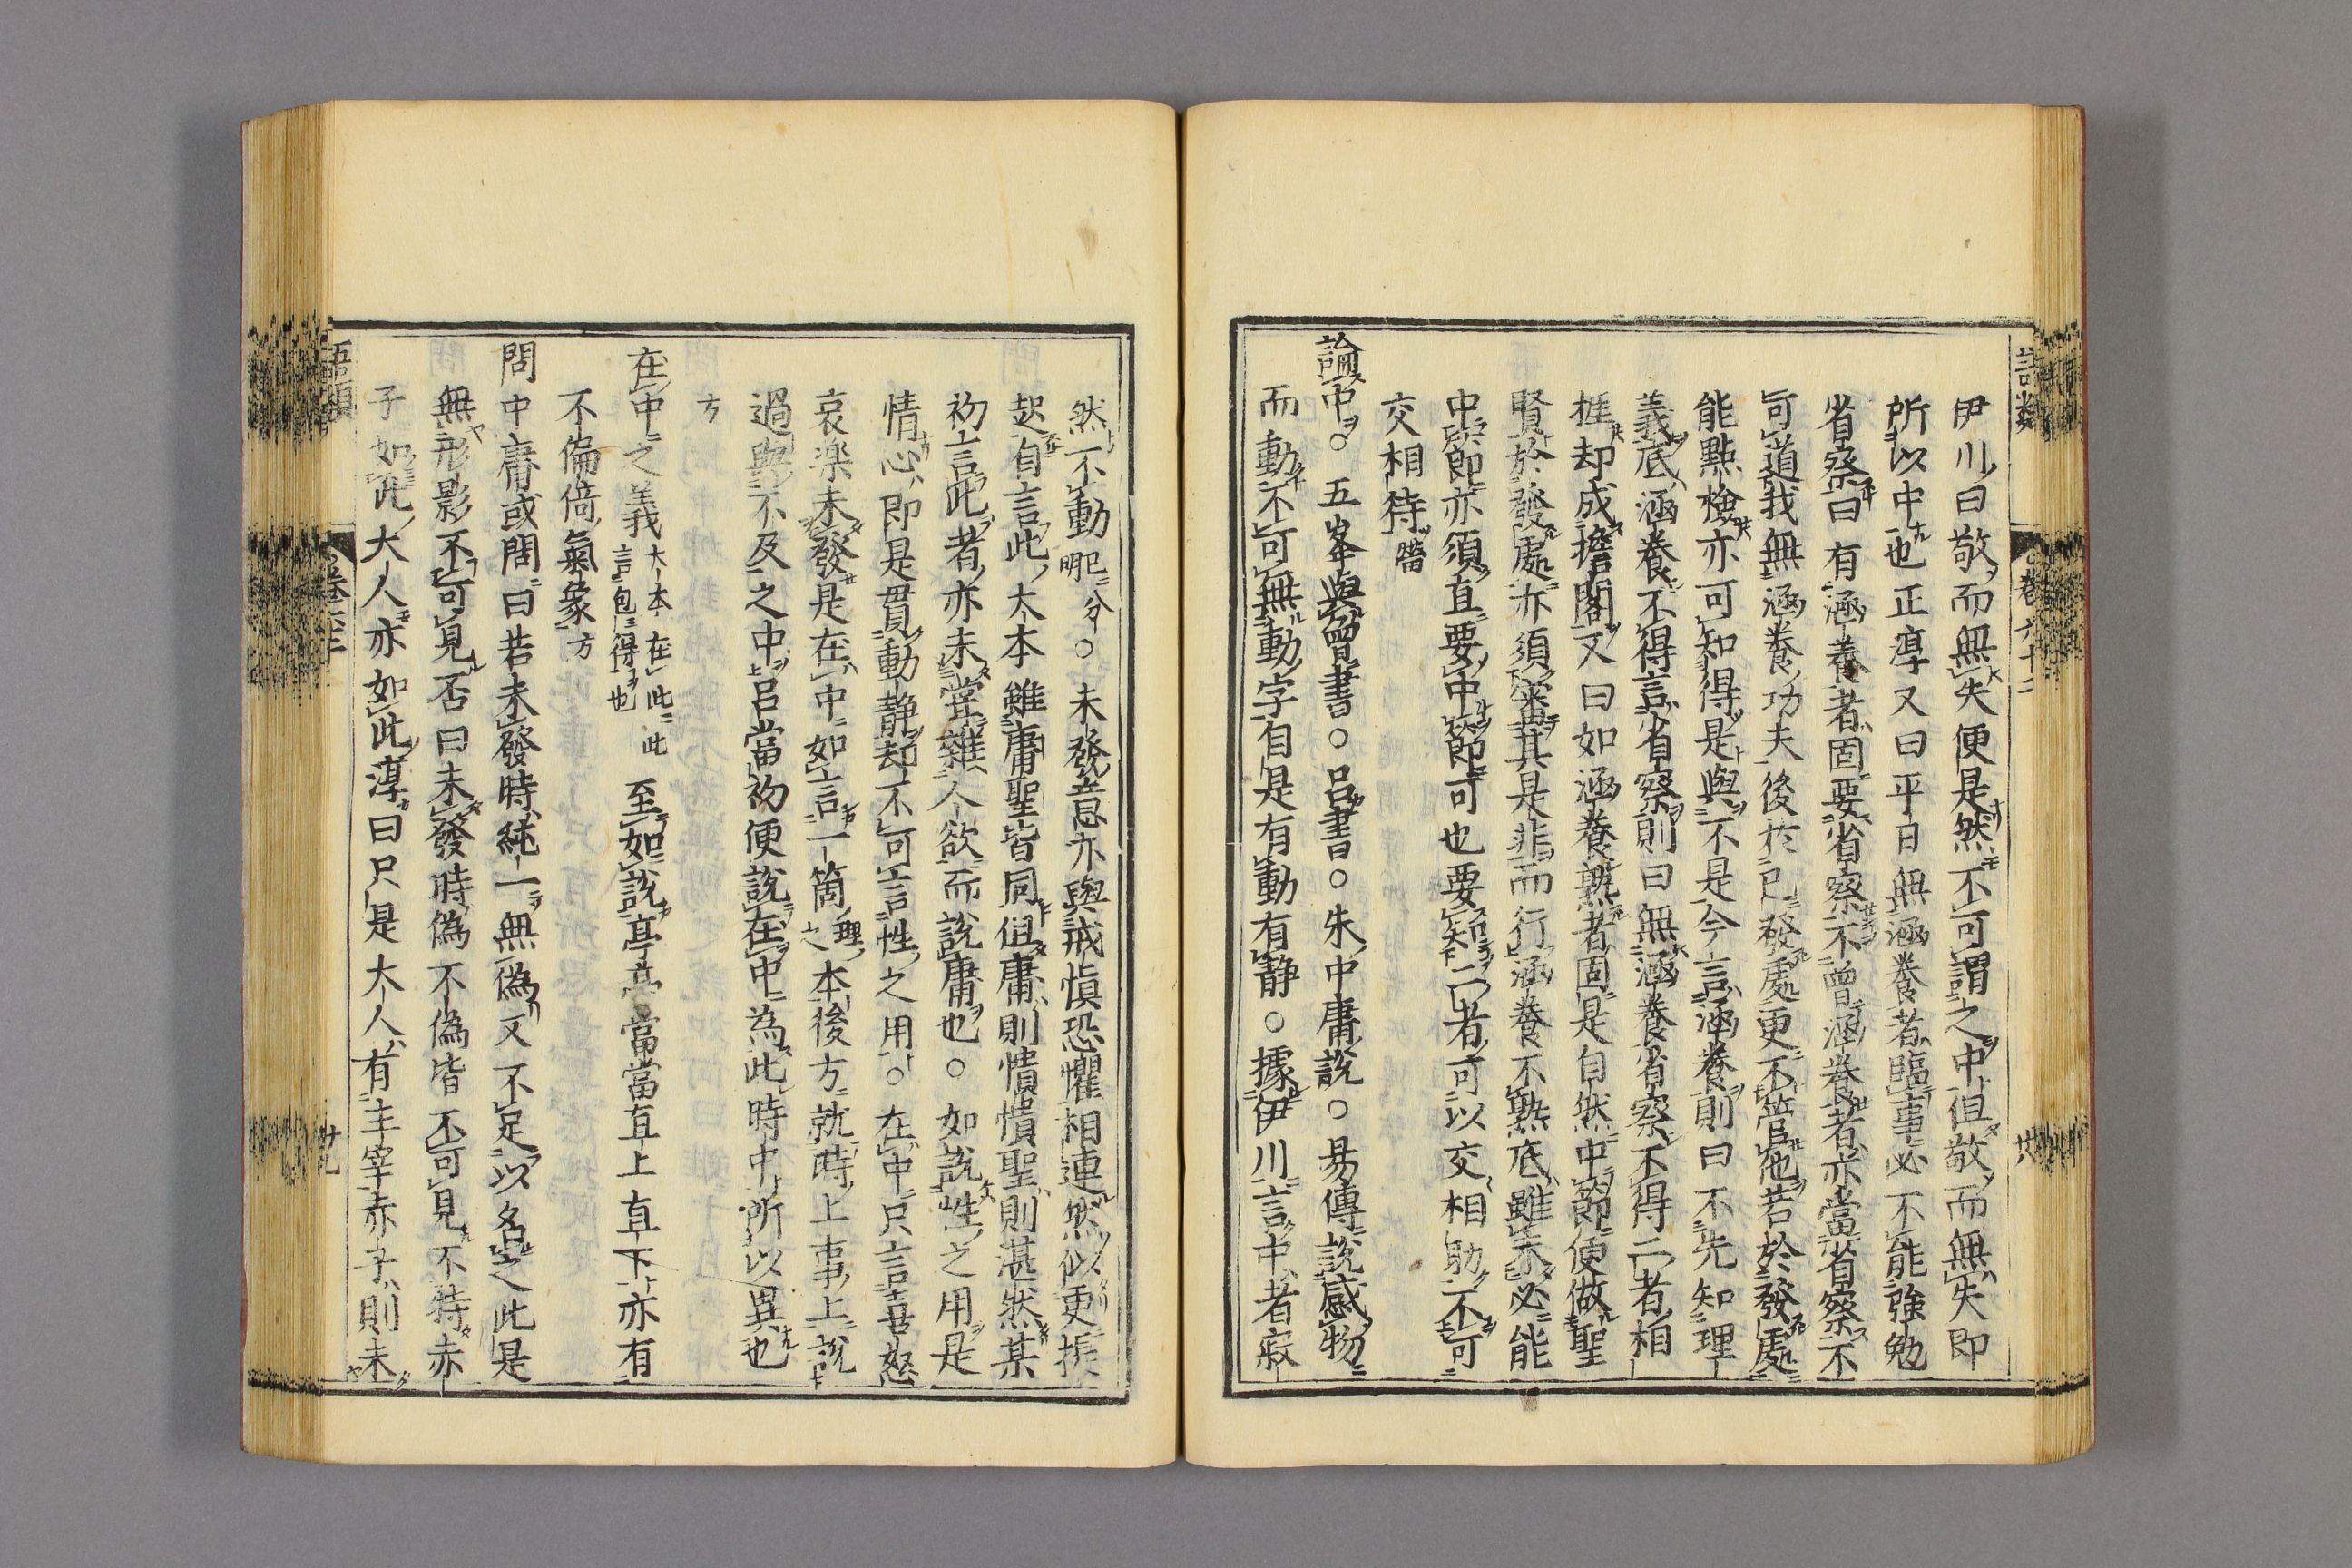 語類
卷六十二
伊川曰敬而無失便是然不可謂之中但敬而無失即
所以中也正淳又曰平日無涵養者臨事必不能強勉
省察曰有涵養者固要省察不曾涵養者亦當省察不
可道我無涵養功夫後於已發處更不管他若於發處
能點檢亦可知得是與不是今言涵養則曰不先知理
義底涵養不得言省察則曰無涵養省察不得二者相
捱却成擔閣又曰如涵養熟者固是自然中節便做聖
賢於發處亦須審其是非而行涵養不熟底雖未必能
中節亦須直要中節可也要知二者可以交相助不可
交相待㽦
論中○五峯與曾書○呂書○朱中庸說○易傳說感物
而動不可無動字自是有動有靜○據伊川言中者寂
然不動已分明○未發意亦與戒慎恐懼相連然似更提
起自言此大本雖庸聖皆同但庸則憒憒聖則湛然某
初言此者亦未嘗雜人欲而說庸也○如說性之用是
情心即是貫動靜却不可言性之用○在中只言喜怒
哀樂未發是在中如言一箇理之本後方就時上事上說
過與不及之中呂當初便說在中為此時中所以異也
方
在中之義大本在此此言包得也至如說亭亭當當直上直下亦有
不偏倚氣象方
問中庸或問曰若未發時純一無偽又不足以名之此是
無形影不可見否曰未發時偽不偽皆不可見不特赤
子如此大人亦如此淳曰只是大人有主宰赤子則未
語類
卷六十二
廿九